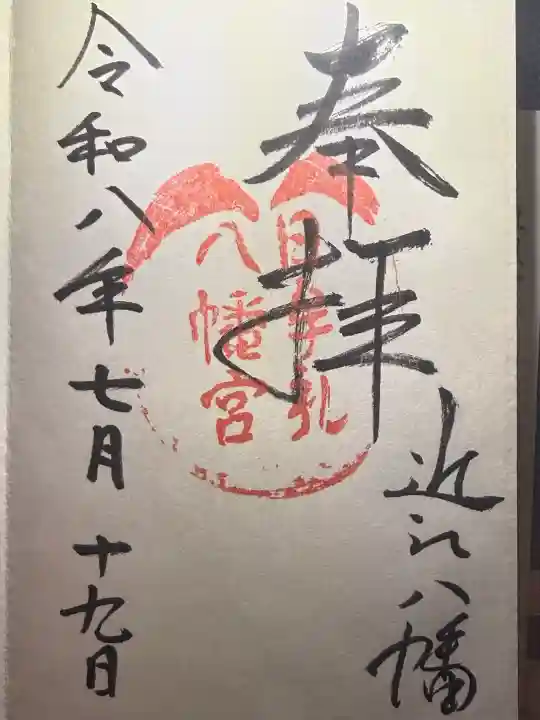 奉拝
近江八幡
日牟礼
八幡宮
令和八年七月十九日